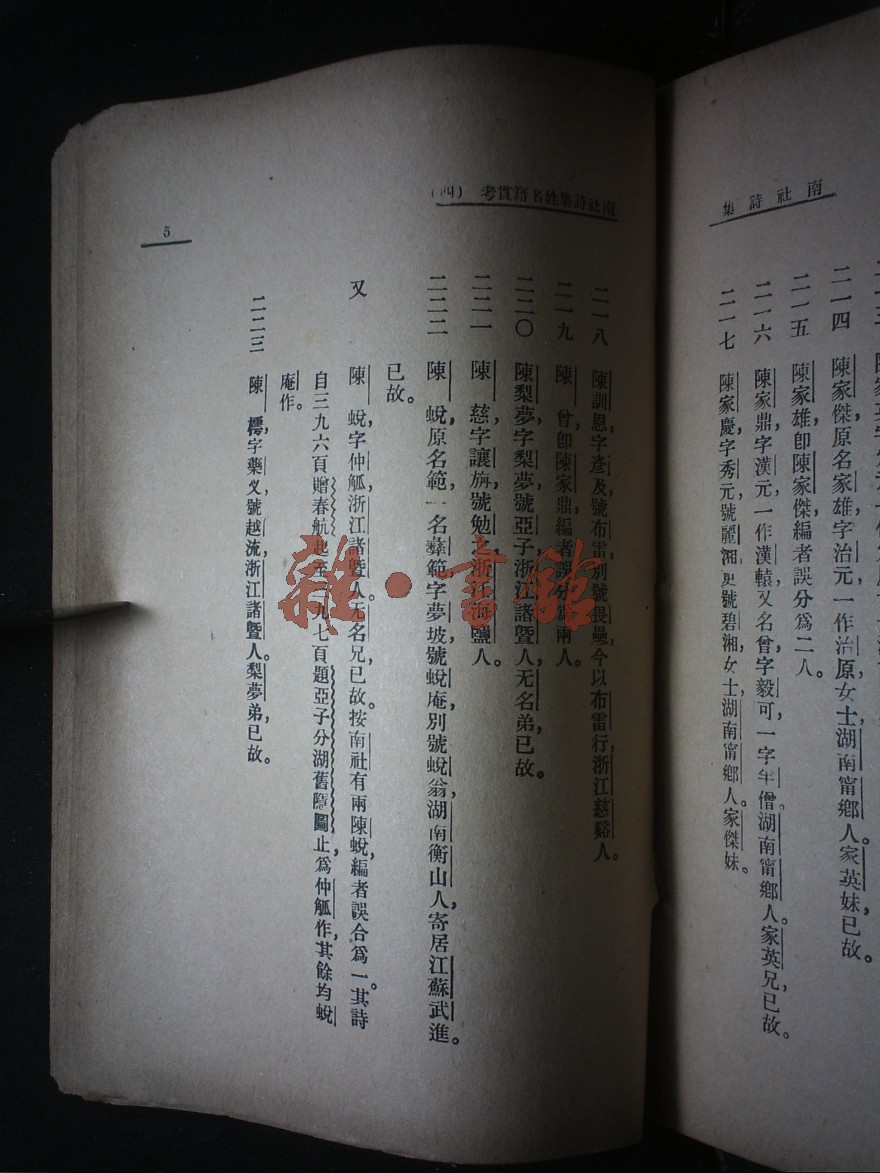 南社詩集
二一四 陳家傑原名家雄字治元一作治原女士湖南甯鄉人家英妹已故。
二一五 陳家雄卽陳家傑編者誤分爲二人。
二一六 陳家鼎字漢元一作漢轅又名曾字毅可一字年僧湖南甯鄉人家英兄已故。
二一七 陳家慶字秀元號麗湘更號碧湘女士湖南甯鄉人家傑妹。
南社詩集姓名籍貫考 (四)
二一八 陳訓恩字彥及號布雷別號畏壘今以布雷行浙江慈谿人。
二一九 陳 曾卽陳家鼎編者誤分爲兩人。
二二〇 陳梨夢字梨夢號亞子浙江諸曁人无名弟已故。
二二一 陳 慈字讓旃號勉之浙江海鹽人。
二二二 陳 蛻原名範一名彝範字夢坡號蛻庵別號蛻翁湖南衡山人寄居江蘇武進。
已故。
又 陳 蛻字仲觚浙江諸曁人无名兄已故。按南社有兩陳蛻編者誤合爲一。其詩
自三九六頁贈春航起至三九七頁題亞子分湖舊隱圖止爲仲觚作其餘均蛻
庵作。
二二三 陳 樗字藥乂號越流浙江諸曁人。梨夢弟已故。
5
雜·書館